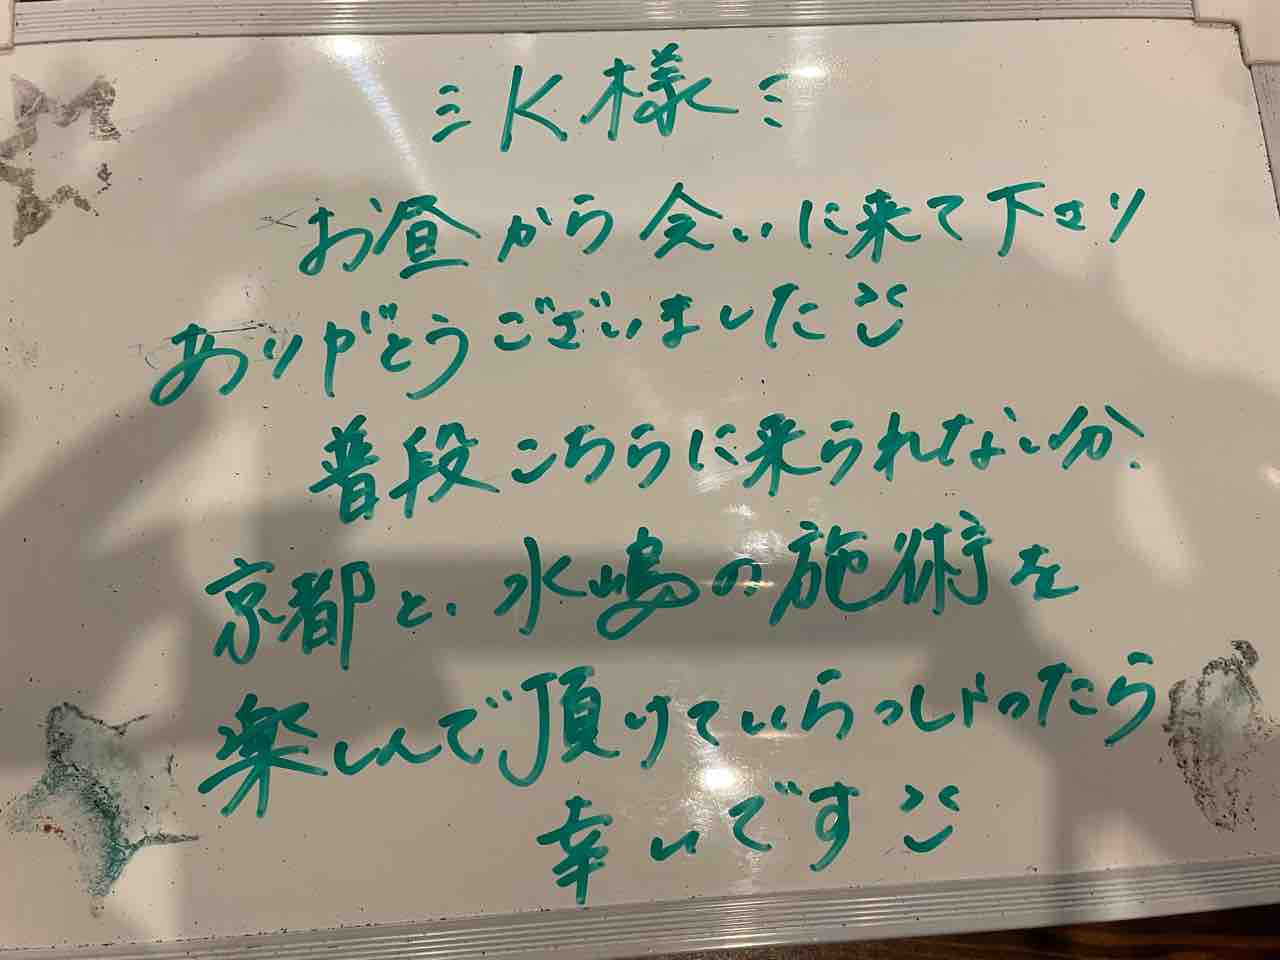 K様
お昼から会いに来て下さり
ありがとうございました
普段こちらに来られない分、
京都と、水嶋の施術を
楽しんで頂けていらっしゃったら
幸いです